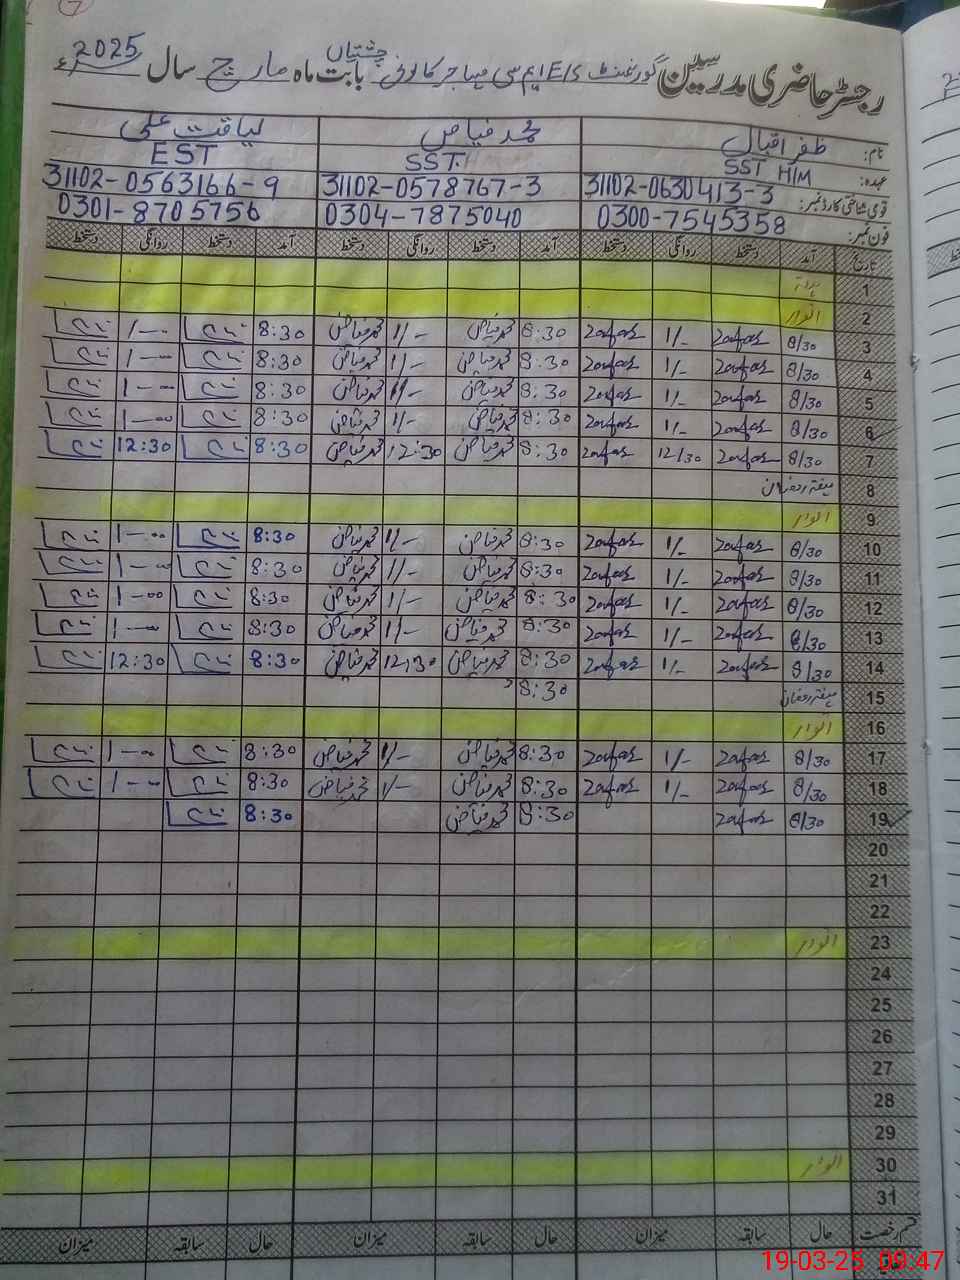 رجسٹر حاضری مدرسین گورنمنٹ E/S ایم سی مہاجر کالونی چشتیاں بابت ماہ مارچ سال 2025ء
نام: ظفر اقبال محمد فیاض لیاقت علی
عہدہ: SST H/M SST EST
قومی شناختی کارڈ نمبر: 31102-0630413-3 31102-0578767-3 31102-0563166-9
فون نمبر: 0300-7545358 0304-7875040 0301-8705756
تاریخ آمد دستخط روانگی دستخط آمد دستخط روانگی دستخط آمد دستخط روانگی دستخط
1
2 اتوار
3 8/30 Zafar 1/- Zafar 8:30 محمد فیاض 1/- محمد فیاض 8:30 1-00
4 8/30 Zafar 1/- Zafar 8:30 محمد فیاض 1/- محمد فیاض 8:30 1-00
5 8/30 Zafar 1/- Zafar 8:30 محمد فیاض 1/- محمد فیاض 8:30 1-00
6 8/30 Zafar 1/- Zafar 8:30 محمد فیاض 1/- محمد فیاض 8:30 1-00
7 8/30 Zafar 12/30 Zafar 8:30 محمد فیاض 12:30 محمد فیاض 8:30 12:30
8 ہفتہ رمضان
9 اتوار
10 8/30 Zafar 1/- Zafar 8:30 محمد فیاض 1/- محمد فیاض 8:30 1-00
11 8/30 Zafar 1/- Zafar 8:30 محمد فیاض 1/- محمد فیاض 8:30 1-00
12 8/30 Zafar 1/- Zafar 8:30 محمد فیاض 1/- محمد فیاض 8:30 1-00
13 8/30 Zafar 1/- Zafar 8:30 محمد فیاض 1/- محمد فیاض 8:30 1-00
14 8/30 Zafar 1/- Zafar 8:30 محمد فیاض 12:30 محمد فیاض 8:30 12:30
15 ہفتہ رمضان 8:30
16 اتوار
17 8/30 Zafar 1/- Zafar 8:30 محمد فیاض 1/- محمد فیاض 8:30 1-00
18 8/30 Zafar 1/- Zafar 8:30 محمد فیاض 1/- محمد فیاض 8:30 1-00
19 8/30 Zafar 8:30 محمد فیاض 8:30
20
21
22
23 اتوار
24
25
26
27
28
29
30 اتوار
31
قسم رخصت حال سابقہ میزان حال سابقہ میزان حال سابقہ میزان
19-03-25 09:47